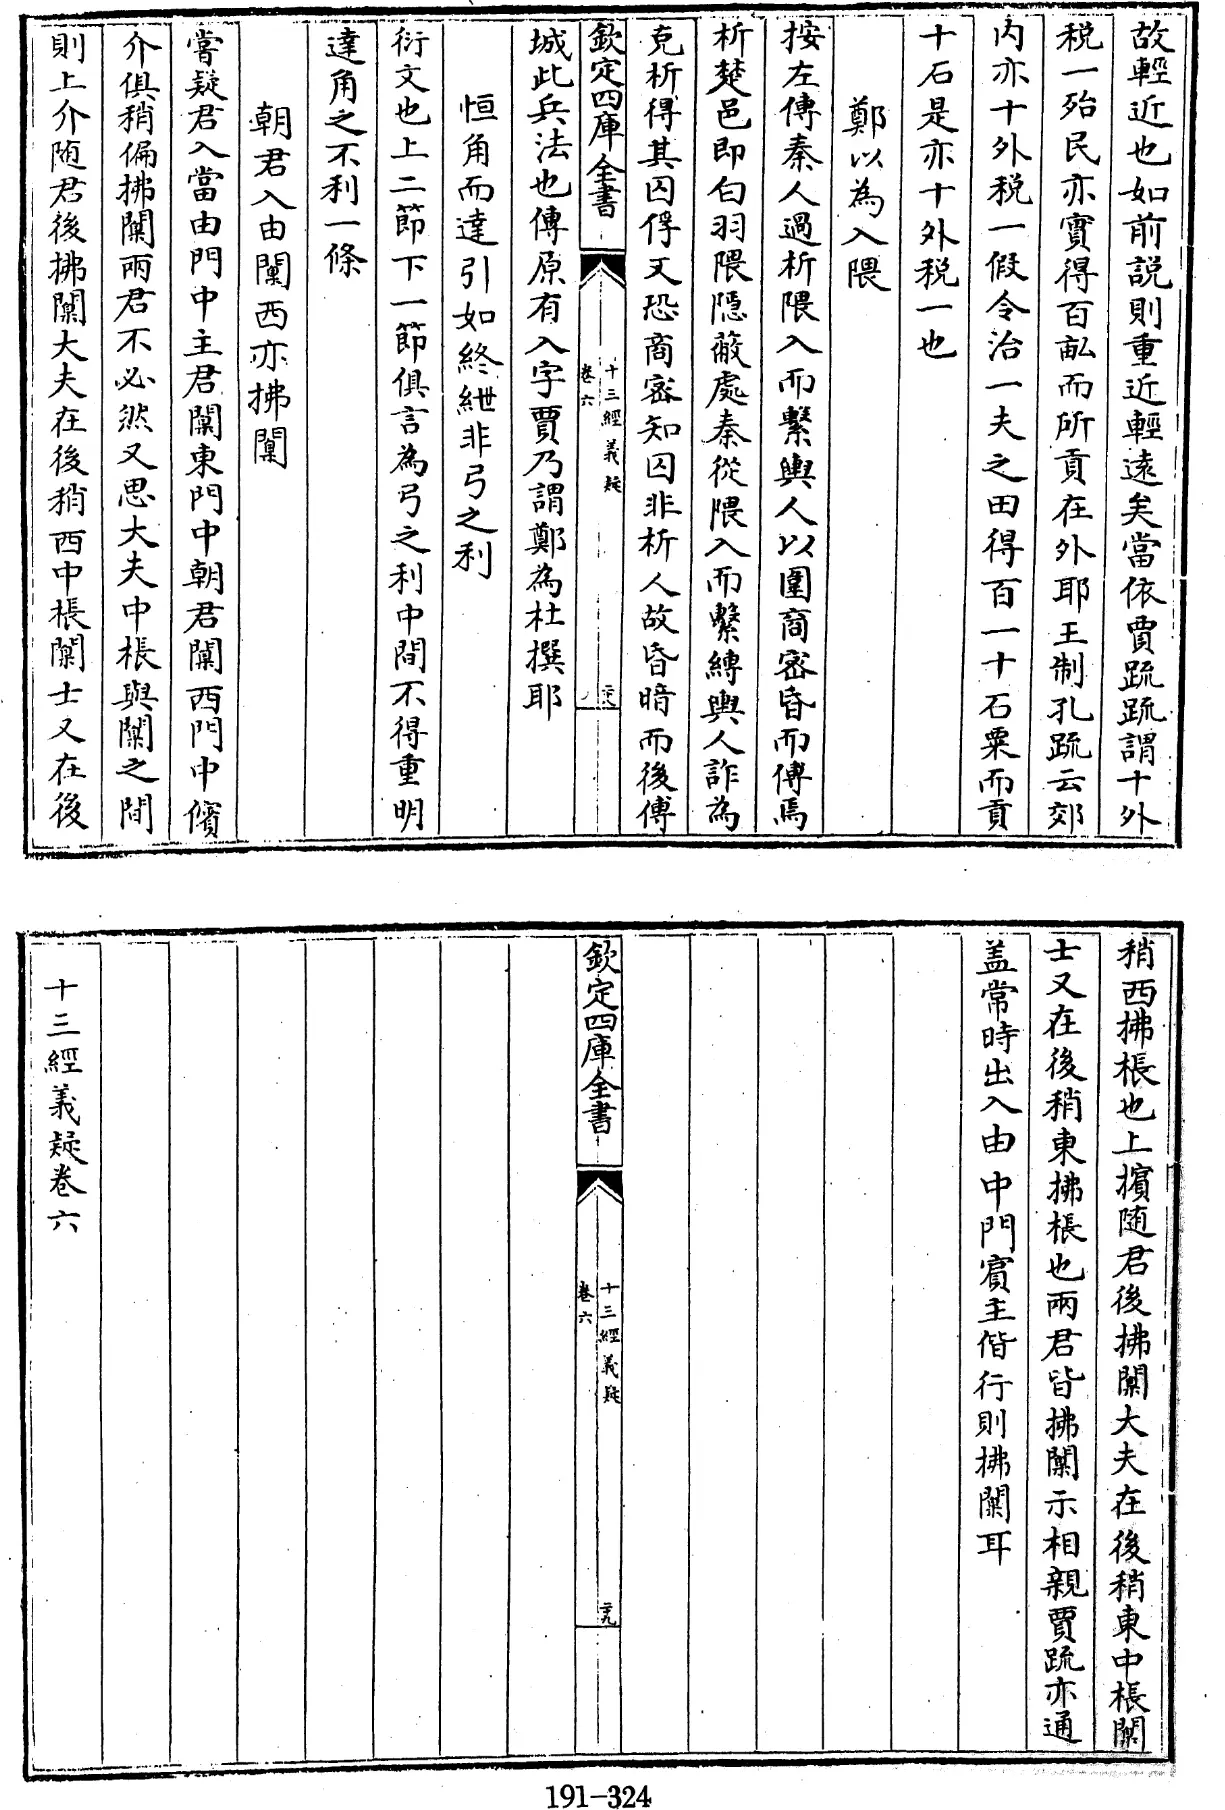 故輕近也如前説則重近輕遠矣當依賈疏疏謂十外
税一殆民亦實得百畝而所貢在外耶王制孔疏云郊
内亦十外税一假令治一夫之田得百一十石粟而貢
十石是亦十外税一也
鄭以為入隈
按左傳秦人過析隈入而繫輿人以圍商密昏而傅焉
析楚邑即白羽隈隱蔽處秦從隈入而繫縛輿人詐為
克析得其囚俘又恐商密知囚非析人故昏暗而後傅
欽定四庫全書
十三經義疑
卷六
二十八
城此兵法也傳原有入字賈乃謂鄭為杜撰耶
恒角而達引如終紲非弓之利
衍文也上二節下一節俱言為弓之利中間不得重明
達角之不利一條
朝君入由闑西亦拂闑
嘗疑君入當由門中主君闑東門中朝君闑西門中儐
介俱稍偏拂闑兩君不必然又思大夫中棖與闑之間
則上介随君後拂闑大夫在後稍西中棖闑士又在後
稍西拂棖也上擯随君後拂闑大夫在後稍東中棖闑
士又在後稍東拂棖也兩君皆拂闑示相親賈疏亦通
盖常時出入由中門賓主偕行則拂闑耳
欽定四庫全書
十三經義疑
卷六
二十九
十三經義疑卷六
191-324